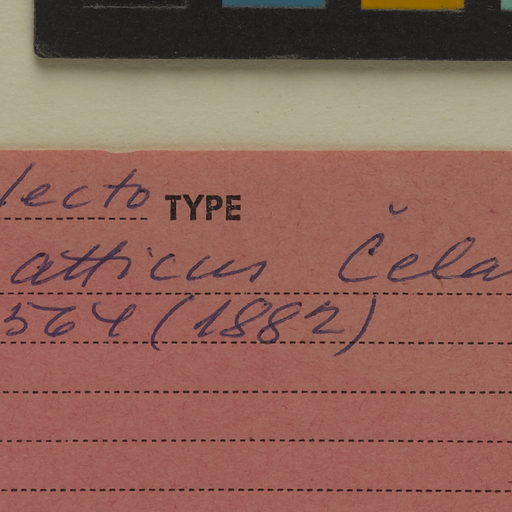 lecto TYPE
atticus Čela
564 (1882)